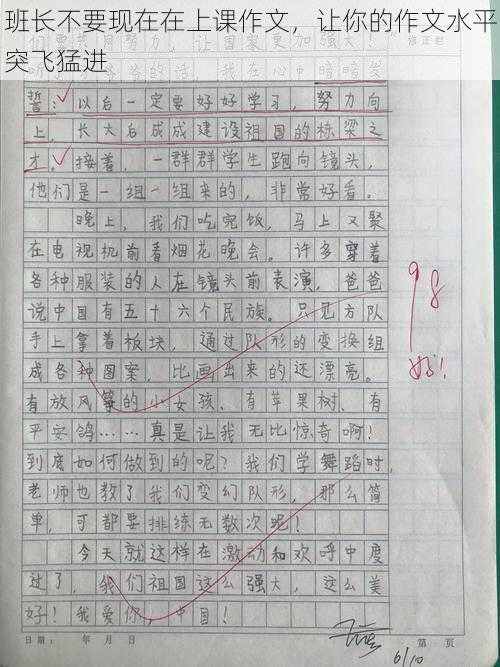 班长不要现在在上课作文，让你的作文水平
突飞猛进
修正栏
誓：以后一定要好好学习，努力向
上，长大后成成建设祖国的栋梁之
才。接着，一群群学生跑向镜头，
他们是一组一组来的，非常好看。
晚上，我们吃完饭，马上又聚
在电视机前看烟花晚会。许多穿着
各种服装的人在镜头前表演，爸爸
说中国有五十六个民族。只见方队
手上拿着板块，通过队形的变换组
成各种图案，比画出来的还漂亮。
有放风筝的小女孩、有苹果树、有
平安鸽……真是让我无比惊奇啊！
到底如何做到的呢？我们学舞蹈时，
老师也教了我们变幻队形，那么简
单，可都要排练无数次呢！
今天就这样在激动和欢呼中度
过了，我们祖国这么强大，这么美
好！我爱你，中国！
98
好！
日期： 年 月 日
第 页
6/10